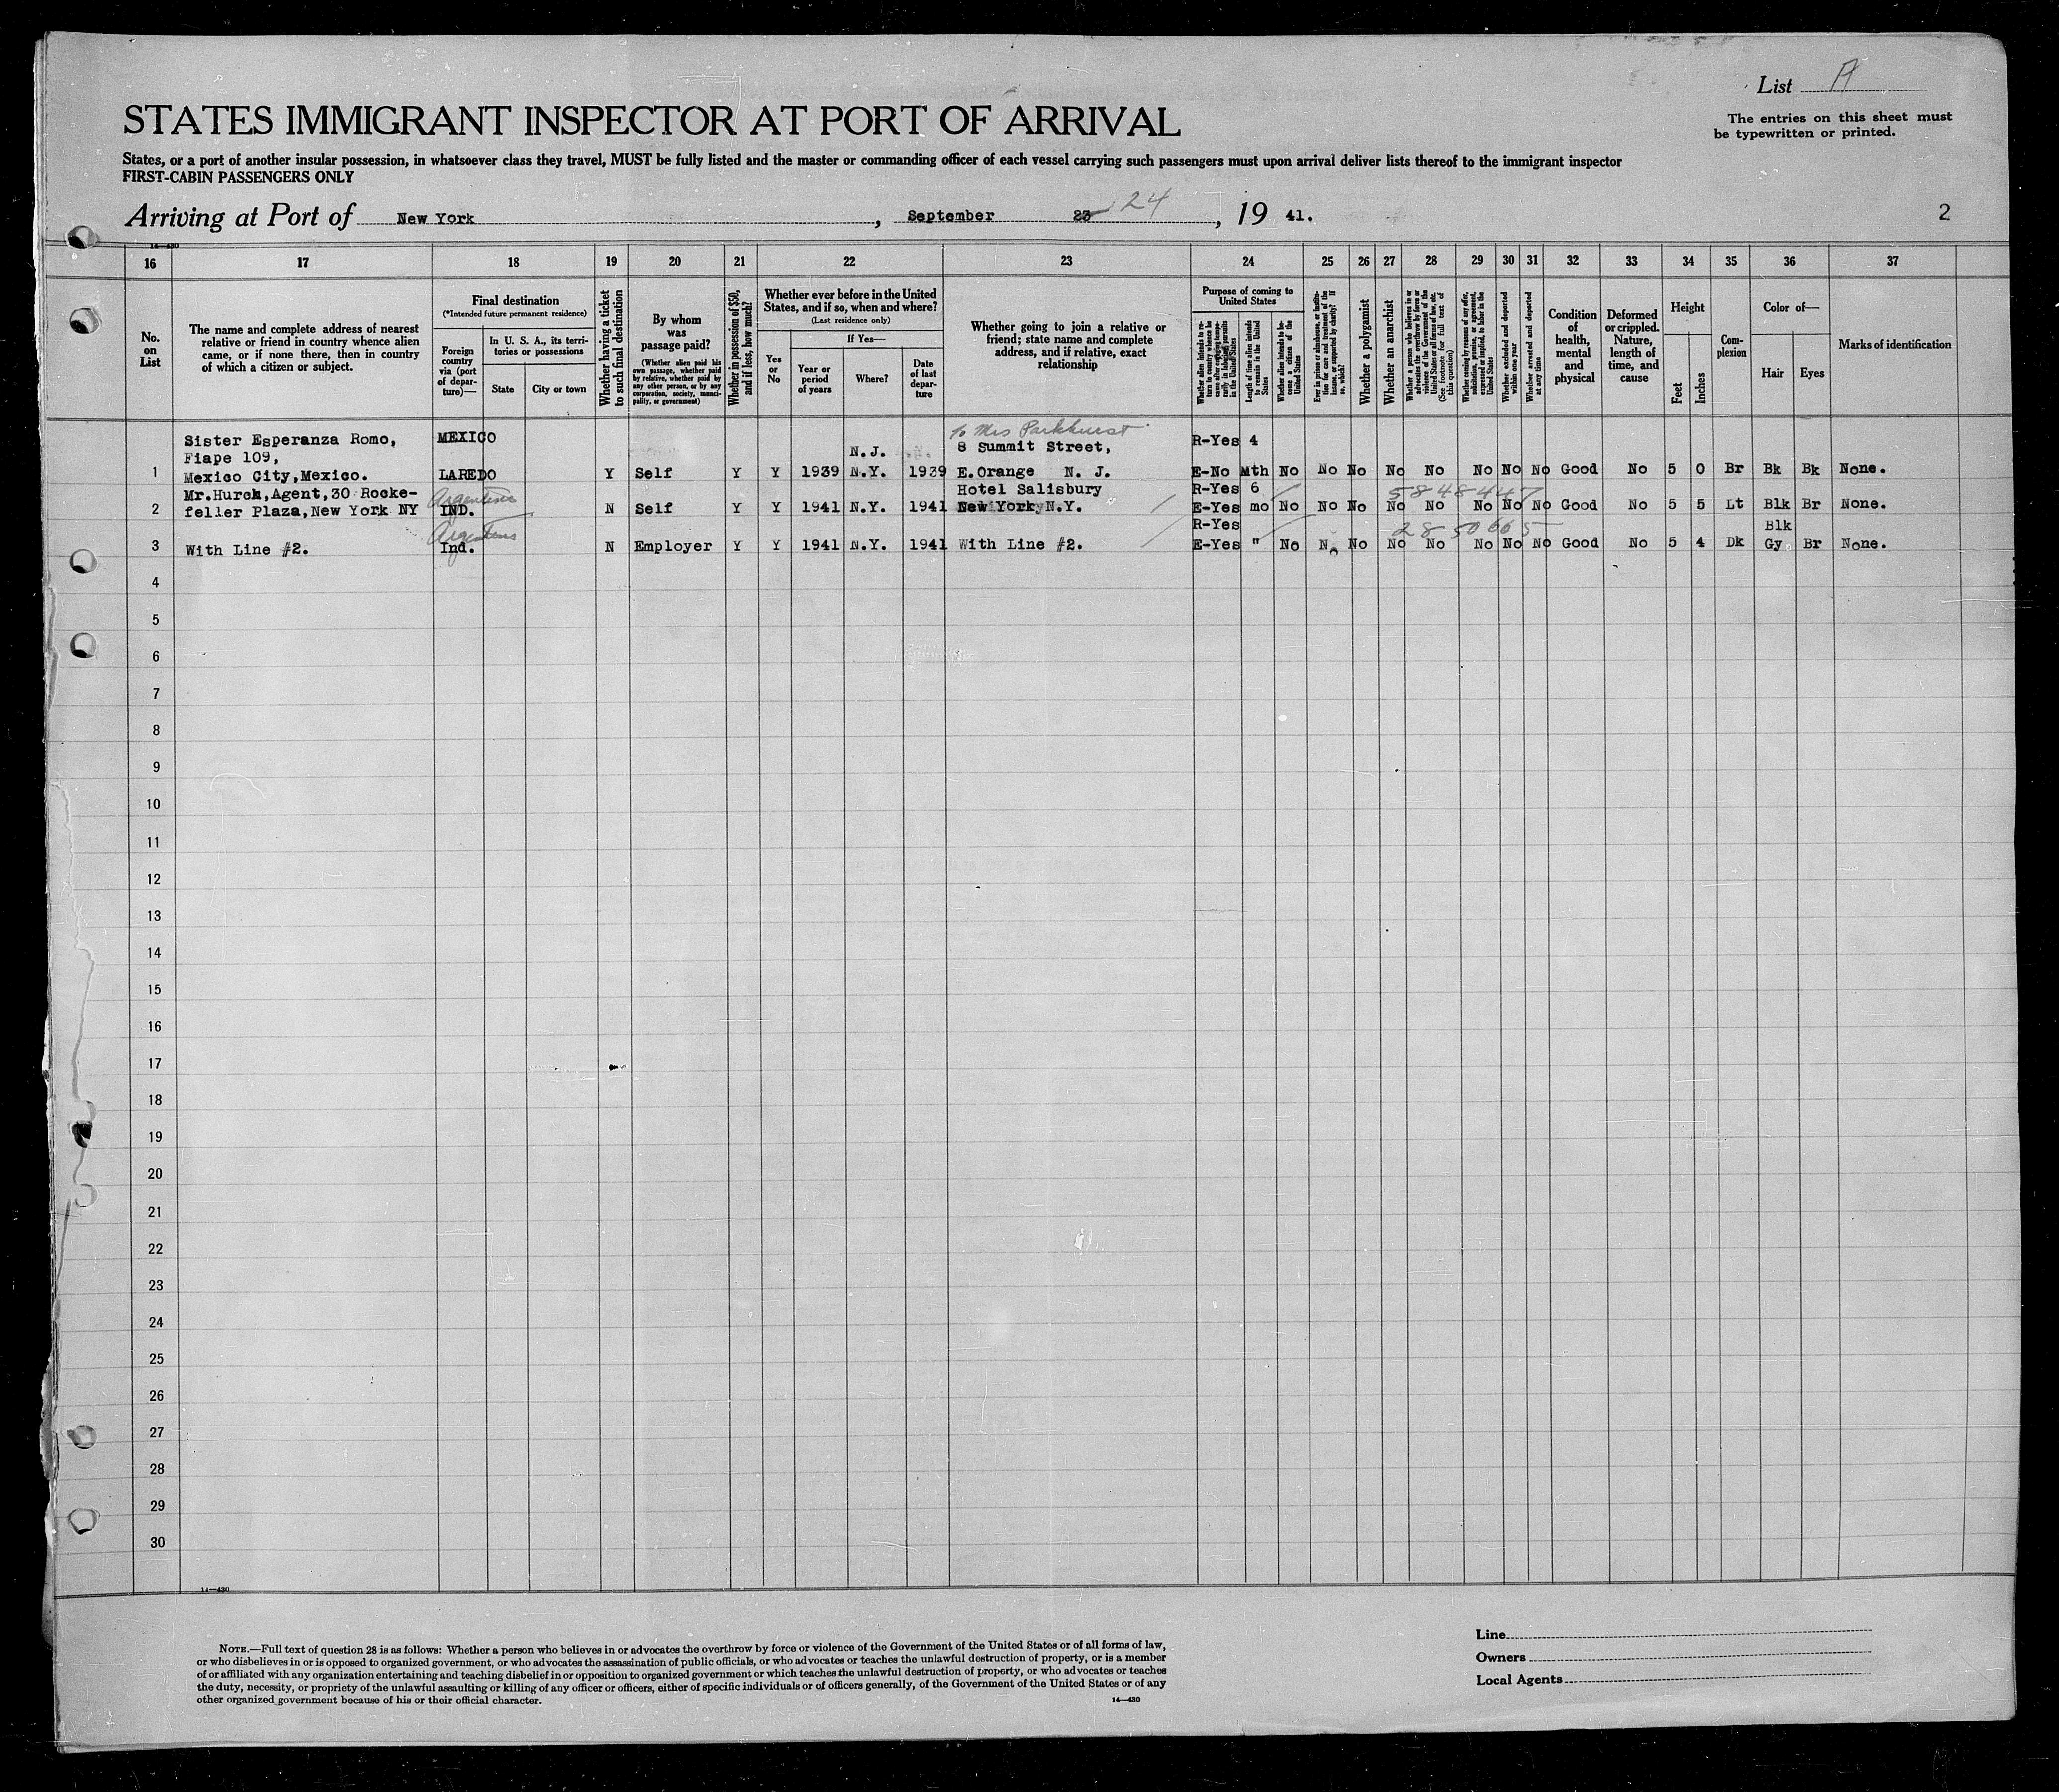 List A
STATES IMMIGRANT INSPECTOR AT PORT OF ARRIVAL
The entries on this sheet must
be typewritten or printed.
States, or a port of another insular possession, in whatsoever class they travel, MUST be fully listed and the master or commanding officer of each vessel carrying such passengers must upon arrival deliver lists thereof to the immigrant inspector
FIRST-CABIN PASSENGERS ONLY
Arriving at Port of New York, September 23 24, 19 41.
2
14—430
16 17 18 19 20 21 22 23 24 25 26 27 28 29 30 31 32 33 34 35 36 37
No. on List
The name and complete address of nearest
relative or friend in country whence alien
came, or if none there, then in country
of which a citizen or subject.
Final destination
(*Intended future permanent residence)
Foreign country via (port of departure)—
In U. S. A., its territories or possessions
State
City or town
Whether having a ticket to such final destination
By whom was passage paid?
(Whether alien paid his own passage, whether paid by relative, whether paid by any other person, or by any corporation, society, municipality, or government)
Whether in possession of $50, and if less, how much?
Whether ever before in the United
States, and if so, when and where?
(Last residence only)
Yes or No
If Yes—
Year or period of years
Where?
Date of last departure
Whether going to join a relative or
friend; state name and complete
address, and if relative, exact
relationship
Purpose of coming to United States
Length of time alien intends to remain in the United States
Whether alien intends to become a citizen of the United States
Ever in prison or almshouse, or institution for care and treatment of the insane, or supported by charity? If so, which?
Whether a polygamist
Whether an anarchist
Whether a person who believes in or advocates the overthrow by force or violence of the Government of the United States or all forms of law, etc. (See footnote for full text of this question)
Whether coming by reasons of any offer, solicitation, promise, or agreement, expressed or implied, to labor in the United States
Whether excluded and deported within one year
Whether arrested and deported at any time
Condition of health, mental and physical
Deformed or crippled. Nature, length of time, and cause
Height
Feet
Inches
Complexion
Color of—
Hair
Eyes
Marks of identification
To Mrs Parkhurst
Sister Esperanza Romo, MEXICO N.J. 8 Summit Street, R-Yes 4
Fiape 109,
1 Mexico City,Mexico. LAREDO Y Self Y Y 1939 N.Y. 1939 E.Orange N. J. E-No Mth No No No No No No No No Good No 5 0 Br Bk Bk None.
Mr.Hurok,Agent,30 Rocke- Argentina Hotel Salisbury R-Yes 6 5848447
2 feller Plaza,New York NY IND. N Self Y Y 1941 N.Y. 1941 New York,N.Y. E-Yes mo No No No No No No No No Good No 5 5 Lt Blk Br None.
Argentina R-Yes 2850665 Blk
3 With Line #2. Ind. N Employer Y Y 1941 N.Y. 1941 With Line #2. E-Yes " No No No No No No No No Good No 5 4 Dk Gy Br None.
4
5
6
7
8
9
10
11
12
13
14
15
16
17
18
19
20
21
22
23
24
25
26
27
28
29
30
14—430
NOTE.—Full text of question 28 is as follows: Whether a person who believes in or advocates the overthrow by force or violence of the Government of the United States or of all forms of law,
or who disbelieves in or is opposed to organized government, or who advocates the assassination of public officials, or who advocates or teaches the unlawful destruction of property, or is a member
of or affiliated with any organization entertaining and teaching disbelief in or opposition to organized government or which teaches the unlawful destruction of property, or who advocates or teaches
the duty, necessity, or propriety of the unlawful assaulting or killing of any officer or officers, either of specific individuals or of officers generally, of the Government of the United States or of any
other organized government because of his or their official character.
14—430
Line
Owners
Local Agents